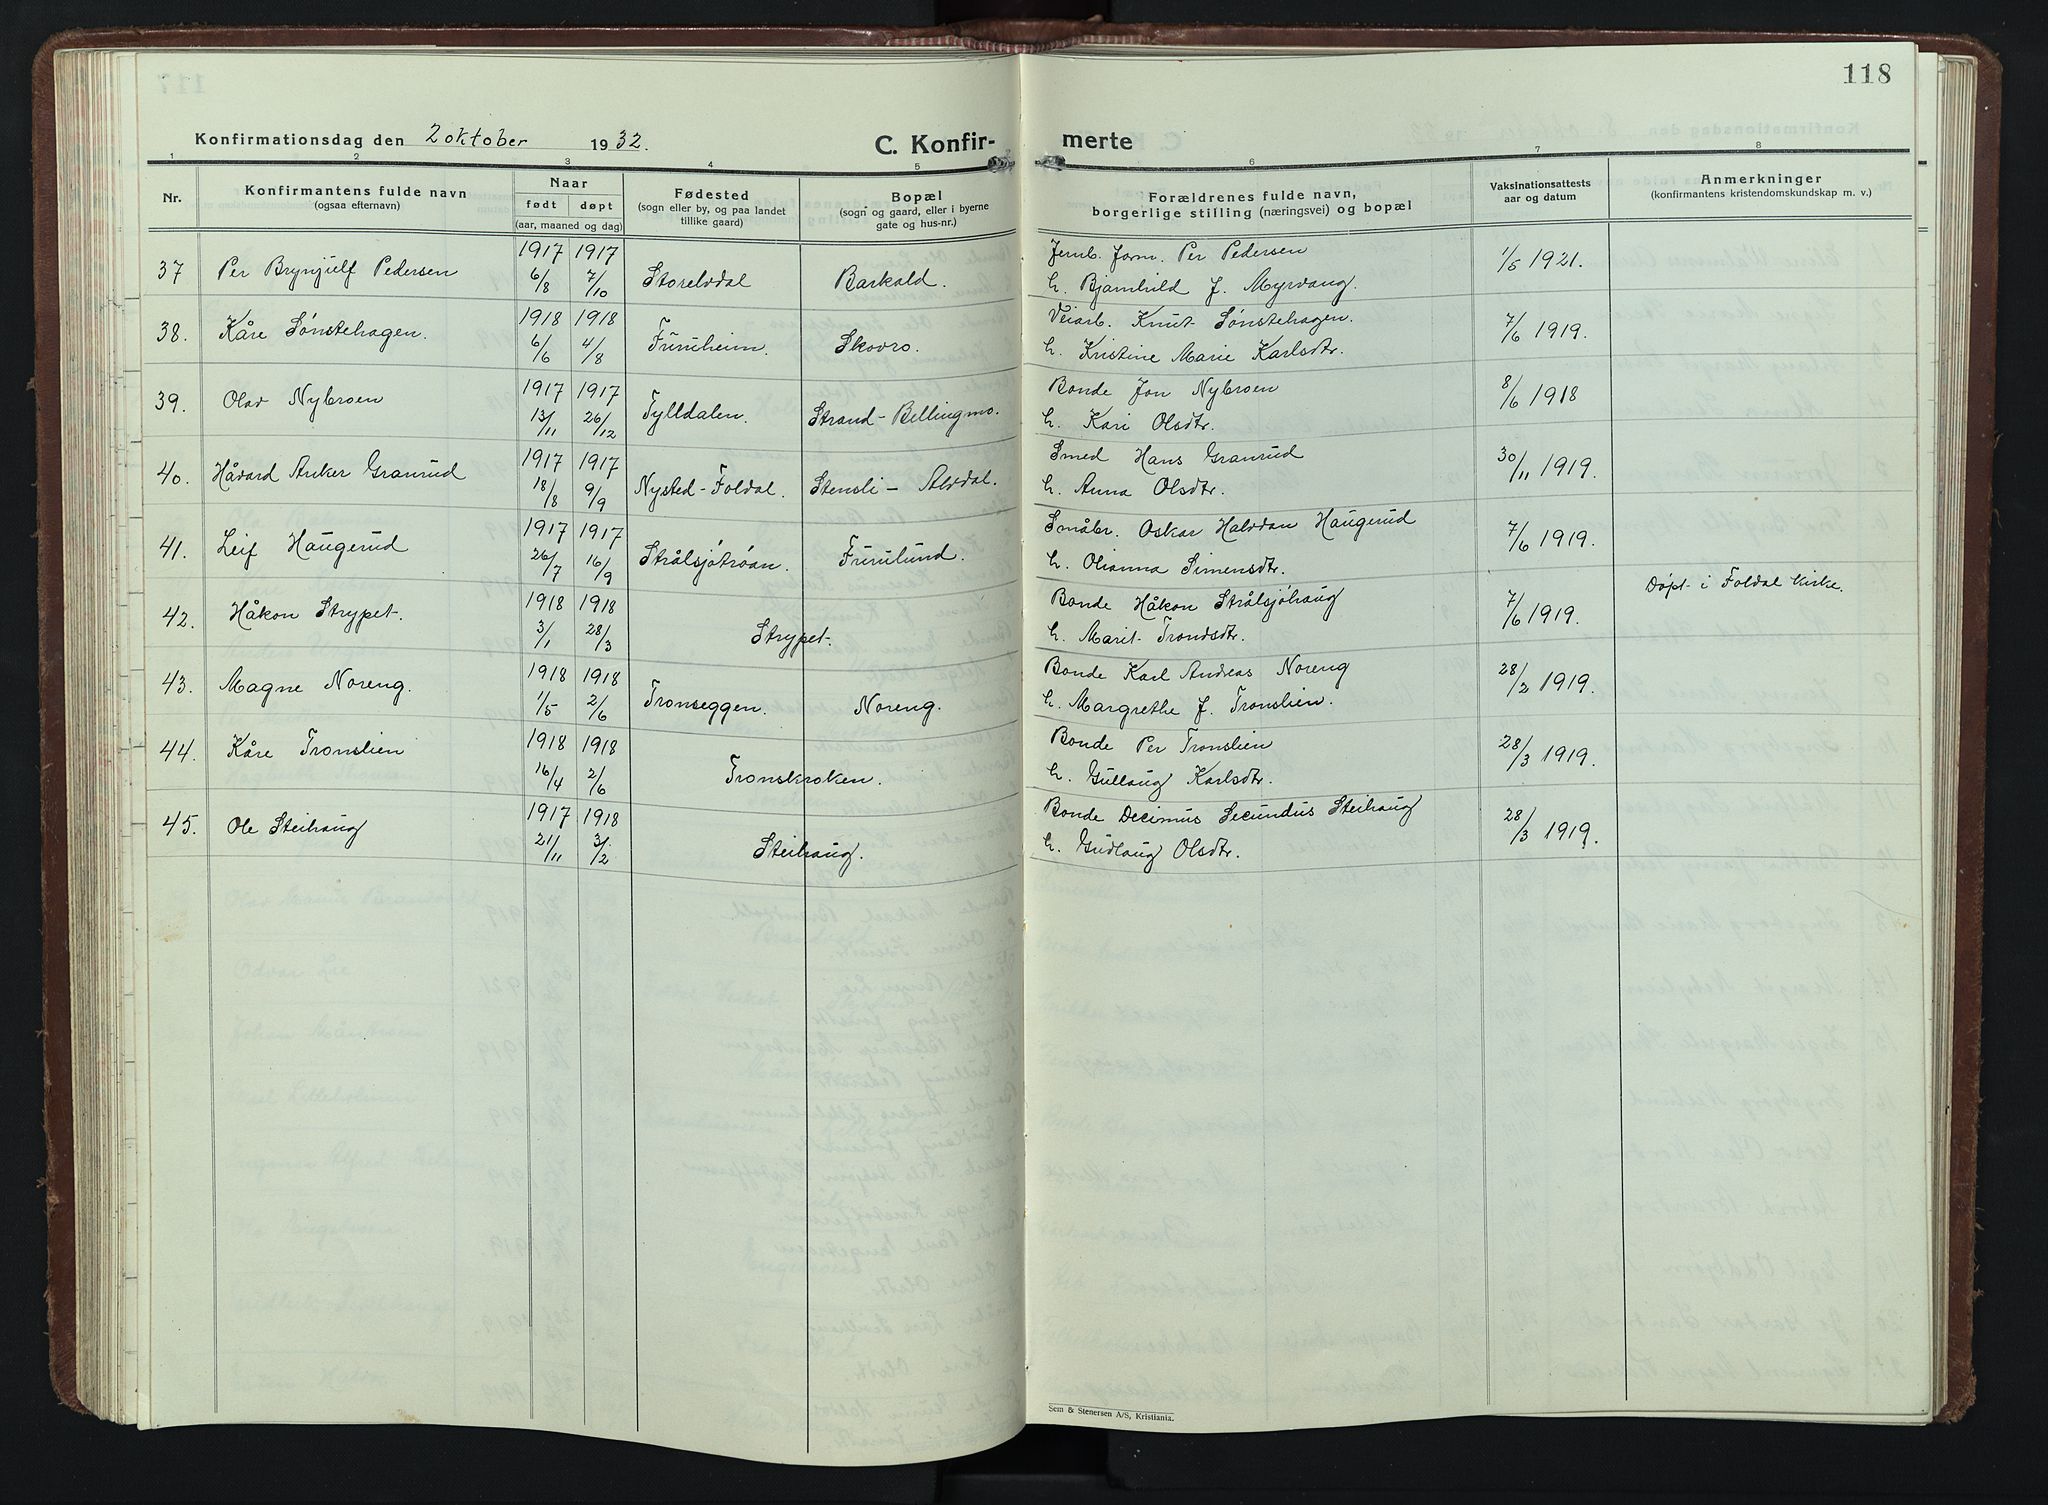 118
Konfirmationsdag den 2 oktober 1932. C. Konfir- merte
1 2 3 4 5 6 7 8
Nr. Konfirmantens fulde navn (ogsaa efternavn) Naar født døpt (aar, maaned og dag) Fødested (sogn eller by, og paa landet tillike gaard) Bopæl (sogn og gaard, eller i byerne gate og hus-nr.) Forældrenes fulde navn, borgerlige stilling (næringsvei) og bopæl Vaksinationsattests aar og datum Anmerkninger (konfirmantens kristendomskundskap m. v.)
1917 1917 Jernb. form. Per Pedersen
37 Per Brynjulf Pedersen 6/8 7/10 Storelvdal Barkald. h. Bjamhild J. Myrvang. 1/5 1921.
1918 1918 Veiarb. Knut Sønstehagen.
38. Kåre Sønstehagen. 6/6 4/8 Furuheim. Skovro. h. Kristine Marie Karlsdtr. 7/6 1919.
1917 1917 Bonde Jon Nybroen
39. Olav Nybroen 13/11 26/12 Tylldalen. Strand-Bellingmo. h. Kari Olsdtr. 8/6 1918
1917 1917 Smed Hans Granrud
40. Håvard Anker Granrud 18/8 9/9 Nysted-Foldal. Stensli - Alvdal. h. Anna Olsdtr. 30/11 1919.
1917 1917 Småbr. Oskar Halvdan Haugerud
41. Leif Haugerud 26/7 16/9 Strålsjøtrøan. Furulund. h. Olianna Simensdtr. 7/6 1919.
1918 1918 Bonde Håkon Strålsjøhaug
42. Håkon Strypet. 3/1 28/3 Strypet. h. Marit Trondsdtr. 7/6 1919. Døpt i Foldal kirke.
1918 1918 Bonde Karl Andreas Noreng
43. Magne Noreng. 1/5 2/6 Tronseggen. Noreng. h. Margrethe J. Tronslien. 28/2 1919.
1918 1918 Bonde Per Tronslien
44. Kåre Tronslien 16/4 2/6 Tronskroken. h. Gullaug Karlsdtr. 28/3 1919.
1917 1918 Bonde Decimus Secundus Steihaug
45. Ole Steihaug 21/11 3/2 Steihaug. h. Gudlaug Olsdtr. 28/3 1919.
Sem & Stenersen A/S, Kristiania.